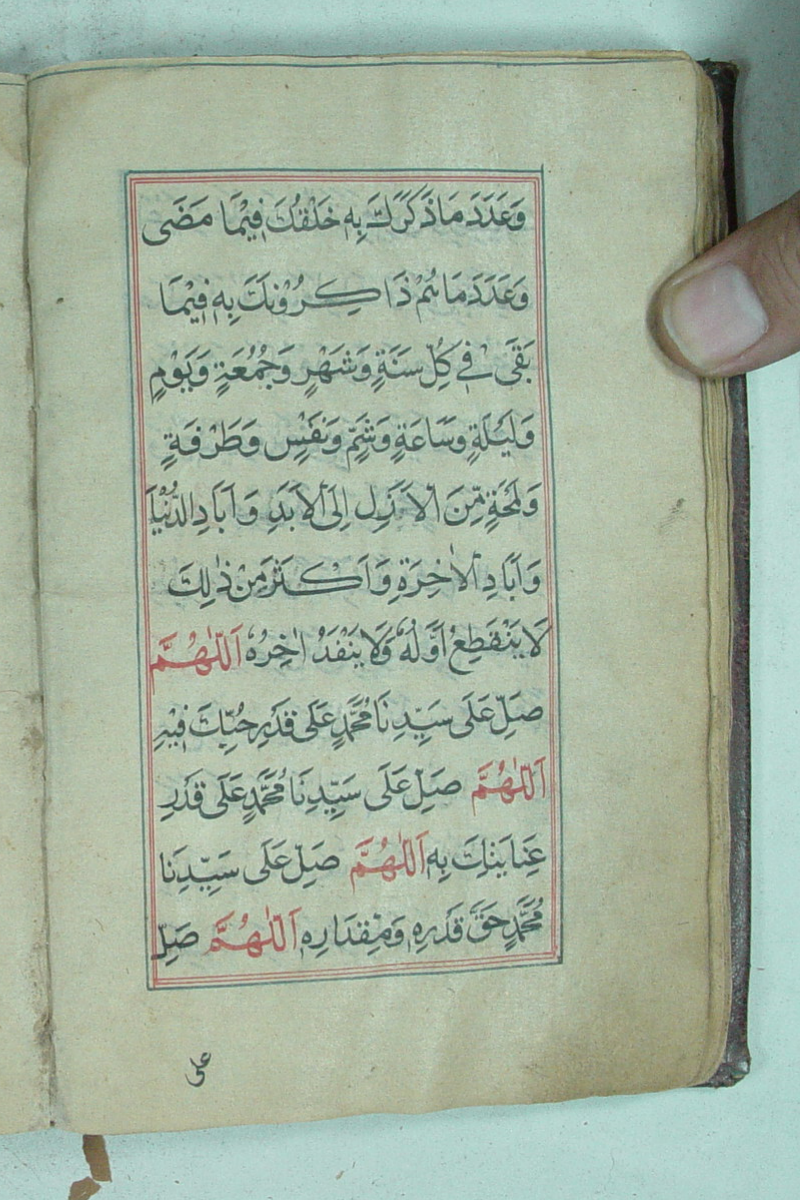 وَعَدَدَ مَا ذَكَرَكَ بِهِ خَلْقُكَ فِيْمَا مَضَى
وَعَدَدَ مَا هُمْ ذَاكِرُوْنَكَ بِهِ فِيْمَا
بَقَى فِيْ كُلِّ سَنَةٍ وَشَهْرٍ وَجُمُعَةٍ وَيَوْمٍ
وَلَيْلَةٍ وَسَاعَةٍ وَشَمٍّ وَنَفَسٍ وَطَرْفَةٍ
وَلَمْحَةٍ مِّنَ الْاَزَلِ اِلَى الْاَبَدِ وَاٰبَادِ الدُّنْيَا
وَاٰبَادِ الْاٰخِرَةِ وَاَكْثَرَ مِنْ ذٰلِكَ
لَا يَنْقَطِعُ اَوَّلُهُ وَلَا يَنْفَدُ اٰخِرُهُ اَللّٰهُمَّ
صَلِّ عَلَى سَيِّدِنَا مُحَمَّدٍ عَلَى قَدَرِ حُبِّكَ فِيْهِ
اَللّٰهُمَّ صَلِّ عَلَى سَيِّدِنَا مُحَمَّدٍ عَلَى قَدَرِ
عِنَايَتِكَ بِهِ اَللّٰهُمَّ صَلِّ عَلَى سَيِّدِنَا
مُحَمَّدٍ حَقَّ قَدَرِهِ وَمِقْدَارِهِ اَللّٰهُمَّ صَلِّ
على